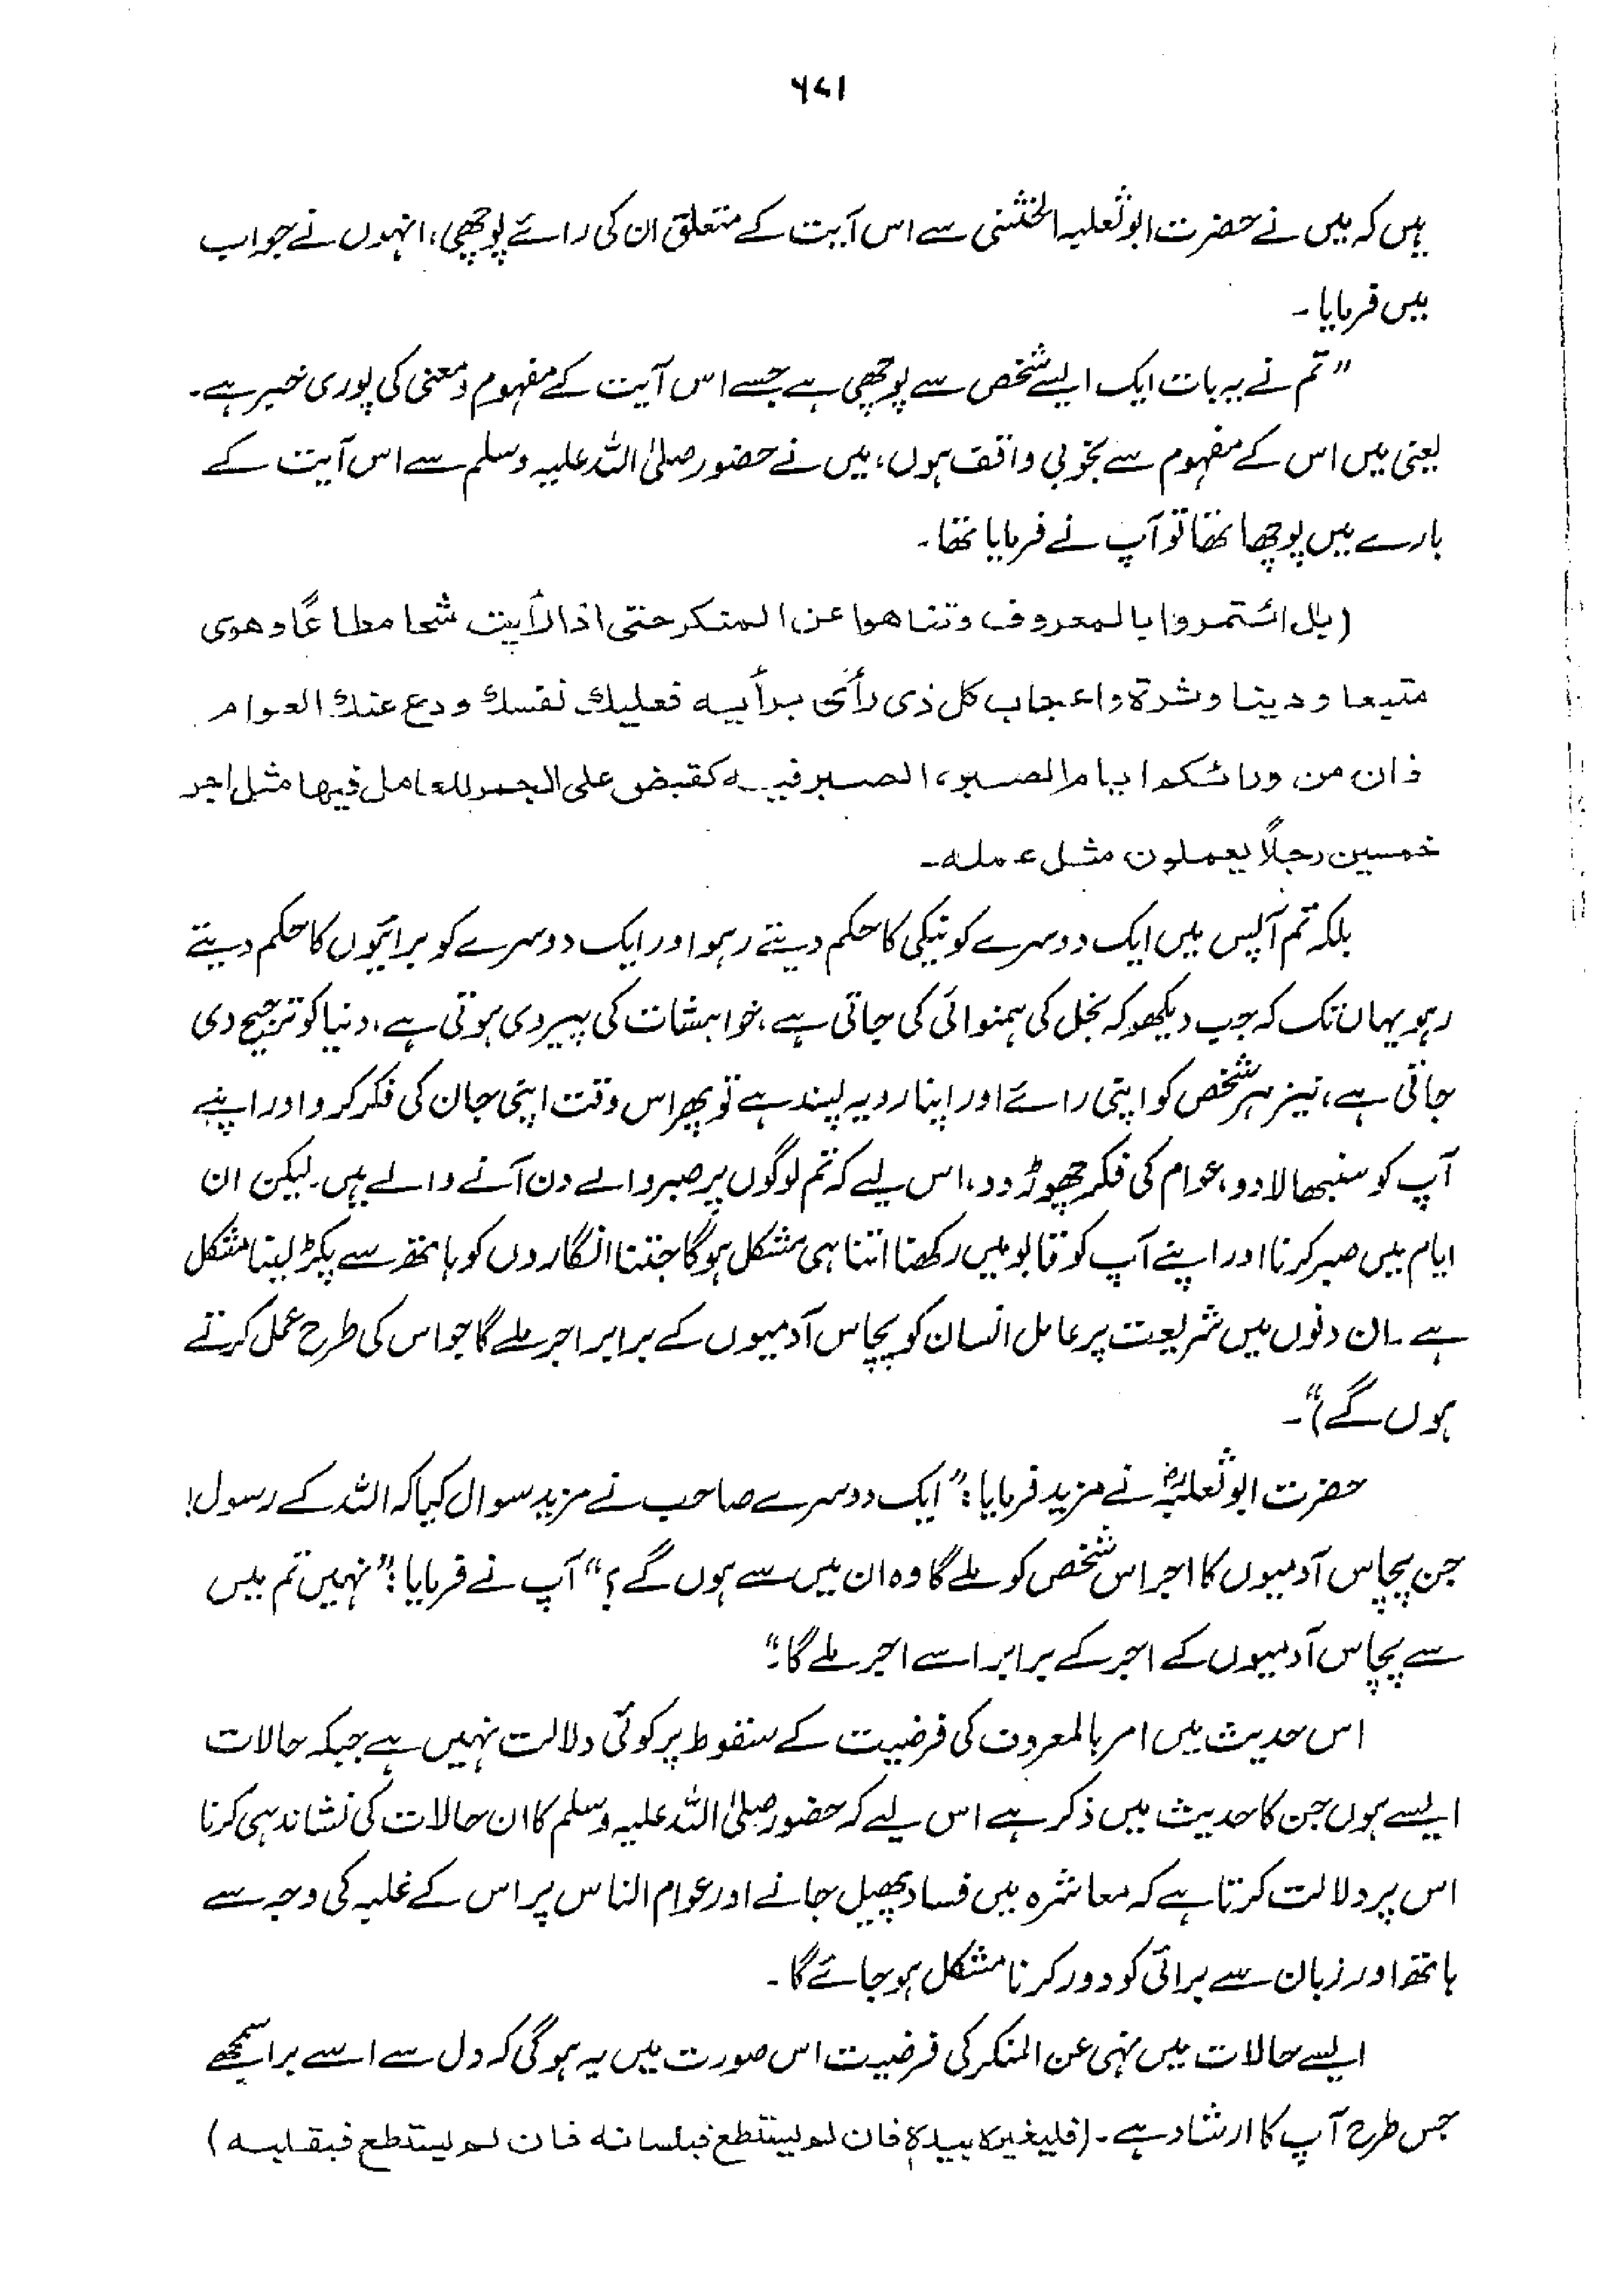 ۶۷۱
ہیں کہ میں نے حضرت ابوثعلبہ الخشنی سے اس آیت کے متعلق ان کی رائے پوچھی، انہوں نے جواب
میں فرمایا۔
"تم نے یہ بات ایک ایسے شخص سے پوچھی ہے جسے اس آیت کے مفہوم و معنی کی پوری خبر ہے۔
یعنی میں اس کے مفہوم سے بخوبی واقف ہوں، میں نے حضور صلی اللہ علیہ وسلم سے اس آیت کے
بارے میں پوچھا تھا تو آپ نے فرمایا تھا۔
(بل ائتمروا بالمعروف وتناهوا عن المنكر حتى اذا لأيت شحا مطاعًا وهوى
متبعا ودينا وشرة واعجاب كل ذى رأى برأيه فعليك نفسك ودع عنك العوام
فان من ورائكم ايام الصبر، الصبر فيه كقبض على الجمر للعامل فيها مثل اجر
خمسين رجلاً يعملون مثل عمله۔
بلکہ تم آپس میں ایک دوسرے کو نیکی کا حکم دیتے رہو اور ایک دوسرے کو برائیوں کا حکم دیتے
رہو یہاں تک کہ جب دیکھو کہ بخل کی ہمنوائی کی جاتی ہے، خواہشات کی پیروی ہوتی ہے، دنیا کو ترجیح دی
جاتی ہے، نیز ہر شخص کو اپنی رائے اور اپنا رویہ پسند ہے تو پھر اس وقت اپنی جان کی فکر کرو اور اپنے
آپ کو سنبھالا دو، عوام کی فکر چھوڑ دو، اس لیے کہ تم لوگوں پر صبر والے دن آنے والے ہیں۔ لیکن ان
ایام میں صبر کرنا اور اپنے آپ کو قابو میں رکھنا اتنا ہی مشکل ہوگا جتنا انگاروں کو ہاتھ سے پکڑ لینا مشکل
ہے۔ ان دنوں میں شریعت پر عامل انسان کو پچاس آدمیوں کے برابر اجر ملے گا جو اس کی طرح عمل کرتے
ہوں گے)"۔
حضرت ابوثعلبہؓ نے مزید فرمایا: "ایک دوسرے صاحب نے مزید سوال کیا کہ اللہ کے رسول!
جن پچاس آدمیوں کا اجر اس شخص کو ملے گا وہ ان میں سے ہوں گے؟" آپ نے فرمایا: "نہیں تم میں
سے پچاس آدمیوں کے اجر کے برابر اسے اجر ملے گا۔"
اس حدیث میں امر بالمعروف کی فرضیت کے سقوط پر کوئی دلالت نہیں ہے جبکہ حالات
ایسے ہوں جن کا حدیث میں ذکر ہے اس لیے کہ حضور صلی اللہ علیہ وسلم کا ان حالات کی نشاندہی کرنا
اس پر دلالت کرتا ہے کہ معاشرہ میں فساد پھیل جانے اور عوام الناس پر اس کے غلبہ کی وجہ سے
ہاتھ اور زبان سے برائی کو دور کرنا مشکل ہو جائے گا۔
ایسے حالات میں نہی عن المنکر کی فرضیت اس صورت میں یہ ہوگی کہ دل سے اسے برا سمجھے
جس طرح آپ کا ارشاد ہے۔ (فليغيره بيده فان لم يستطع فبلسانه فان لم يستطع فبقلبه)